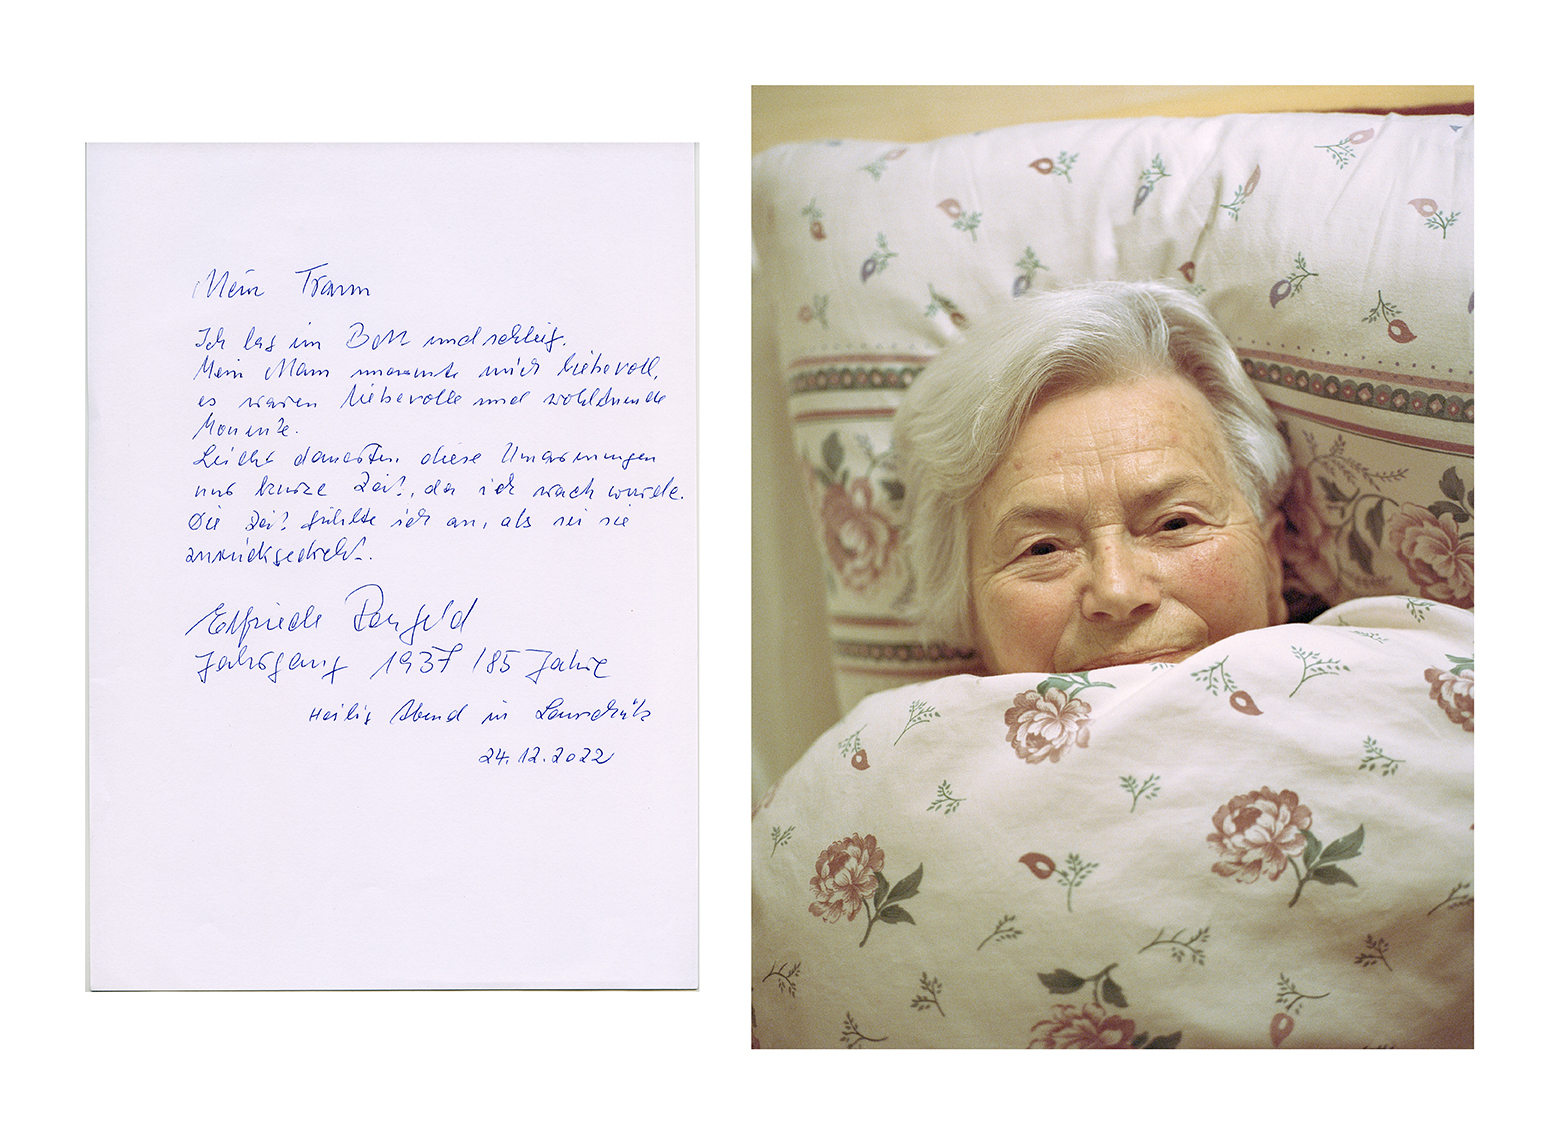 Mein Traum
Ich lag im Bett und schlief.
Mein Mann umarmte mich liebevoll,
es waren liebevolle und wohltuende
Momente.
Leicht dauerten diese Umarmungen
nur kurze Zeit, da ich wach wurde.
Die Zeit fühlte ich an, als sei sie
zurückgedreht.
Elfriede
Jahrgang 1937 / 85 Jahre
Heilig Abend in
24.12.2022